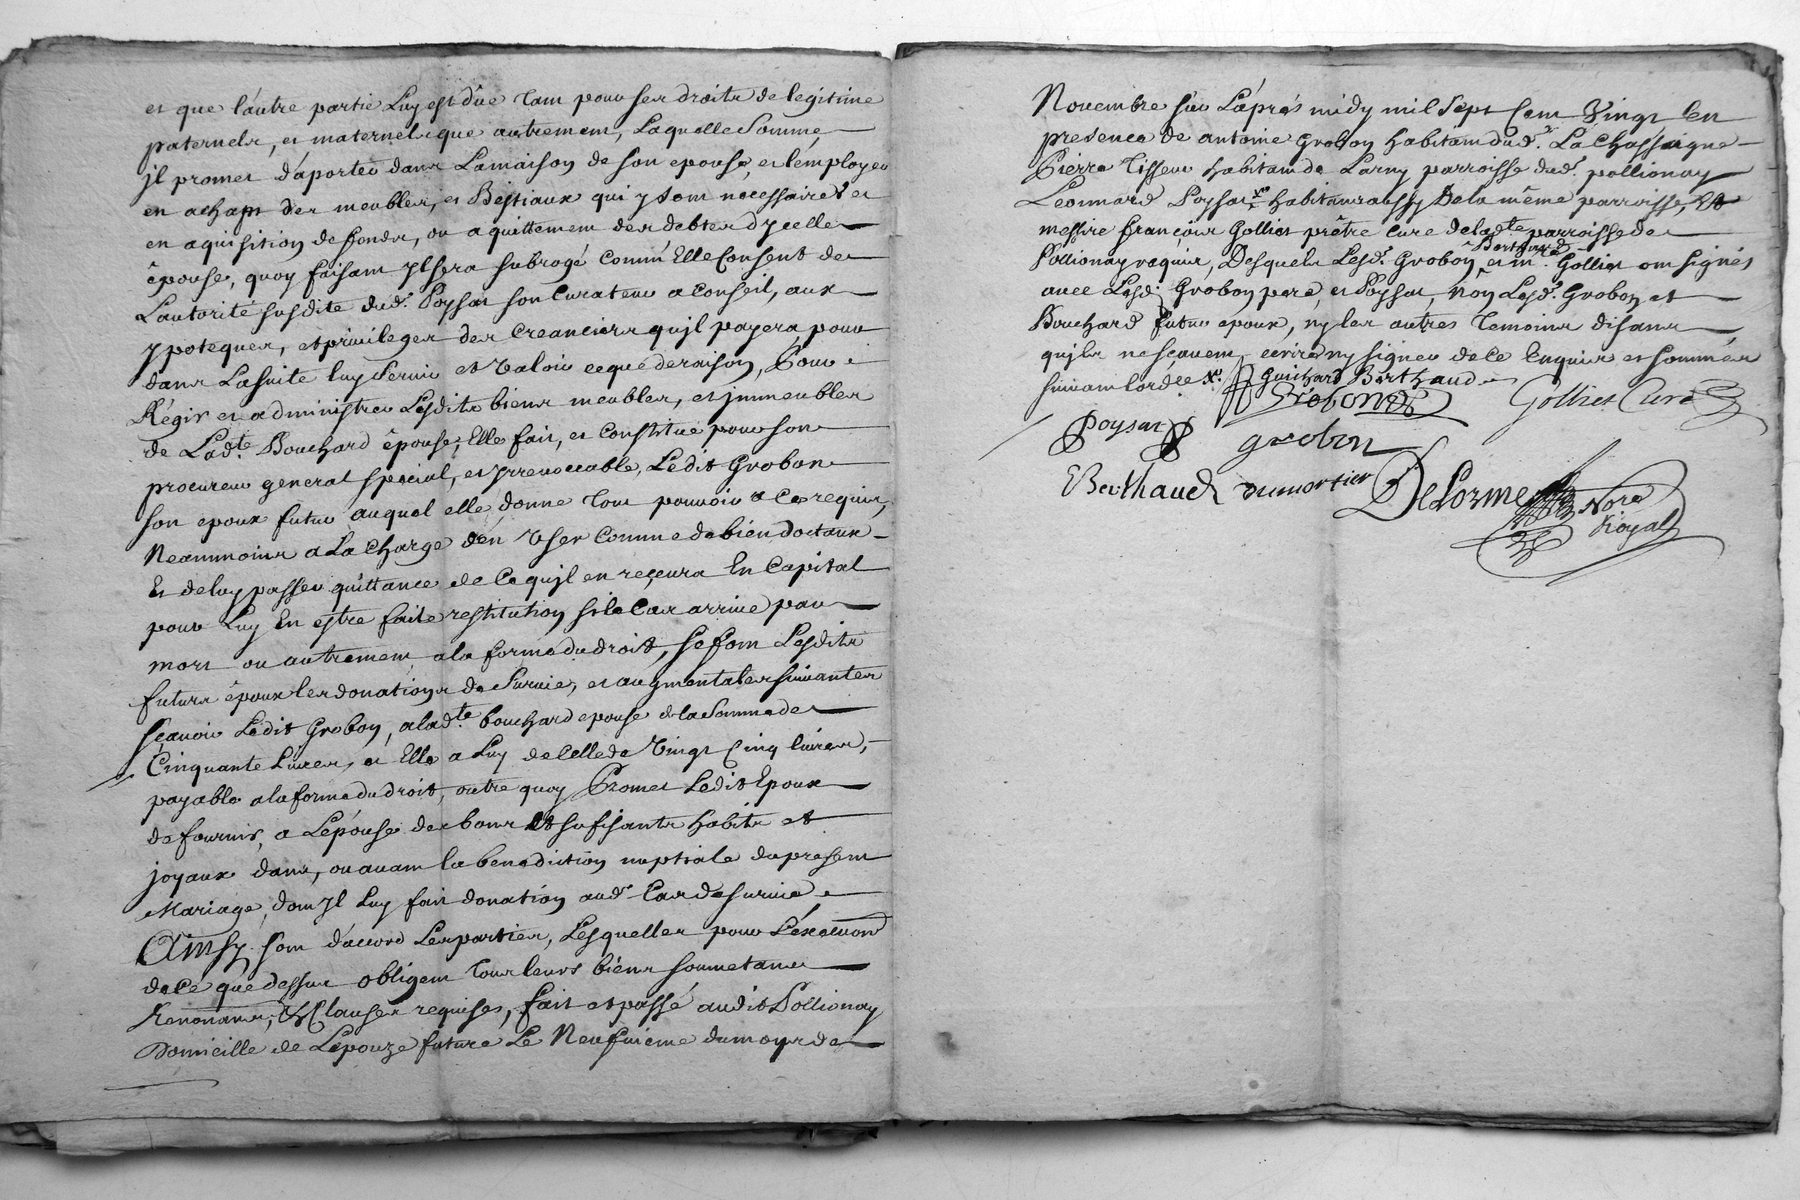 et que l'autre partie Luy est düe tant pour ses droits de legitime
paternels, et maternels que autrement, Laquelle Somme,
jl promet d'aporter dans Lamaison de son epouse, et l'employer
en achapt des meubles, et Bestiaux qui y sont necessaires et
en aquisition de fonds, ou aquittement des debtes d'ycelle
épouse, quoy faisant jl sera subrogé comm' Elle Consent de
L'autorité susdite dud. Poysat son Curateur a Conseil, aux
ypoteques, et privileges des Creanciers qu'jl payera, pour
dans Lasuite luy servir et valoir ce que de raison, Pour
Régir et administrer Lesdits biens meubles, et jmmeubles
de Lade. Bouchard épouse, Elle fait, et Constitue pour son
procureur general special, et yrrevoccable, Ledit Grobon
son epoux futur auquel elle donne tout pouvoir a Ce requis,
Neanmoins a La Charge d'en User Comme de bien doctaux
Et de luy passer quittance de Ce qu'jl en reçevra En Capital
pour Luy En estre faite restitution si le Cas arrive par
mort ou autrement a la forme du droit, se font Lesdits
futurs époux les donations de Survie, et augmentales suivantes
sçavoir Ledit Grobon, a lad.te bouchard epouse de la Somme de
Cinquante Livres, et Elle a Luy de Celle de Vingt Cinq livres,
payable a la forme du droit, outre quoy Promet Ledit Epoux
de fournir, a L'épouse des bons Et sufisants habits et
joyaux dans, ou avant la benediction nuptiale du present
Mariage, dont jl Luy fait donation aud. Cas de survie
Ainsy sont d'accord Les parties, Lesquelles pour L'exécution
de Ce que dessus obligent Tous leurs biens soumetans
Renonans, & Clauses requises, fait et passé audit Pollionay
Domicille de L'epouze future Le Neufvieme du moys de
Novembre sur L'aprés midy mil Sept Cent Vingt En
presence de antoine Grobon habitant dud. La Chassagne
Pierre Tisseur habitant de Larny parroisse dud. pollionay
Leonnard Poysat habitant aussy de la même parroisse, Et
messire françois Gollier prêtre Curé de lad.te parroisse de
Pollionay requis, Desquels Lesd. Grobon, Berthaud et m.re Gollier ont signés
avec Lesd. Grobon pere, et Poysat, Non Lesd. Grobon et
Bouchard futurs epoux, ny les autres temoins disants
qu'jls ne sçavent, ecrire ny signer de ce Enquis et sommés
suivant l'ord.ce Guichard Berthaud
Grobon Gollier Curé
Poysat grobon
Berthaud dumortier DeLorme Not.re
Royal